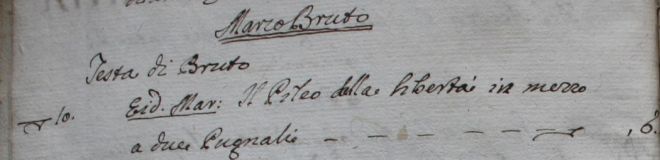 Marco Bruto
Testa di Bruto
10. Eid. Mar: Il Pileo della libertà in mezzo
a due Pugnali — — — — , 6.